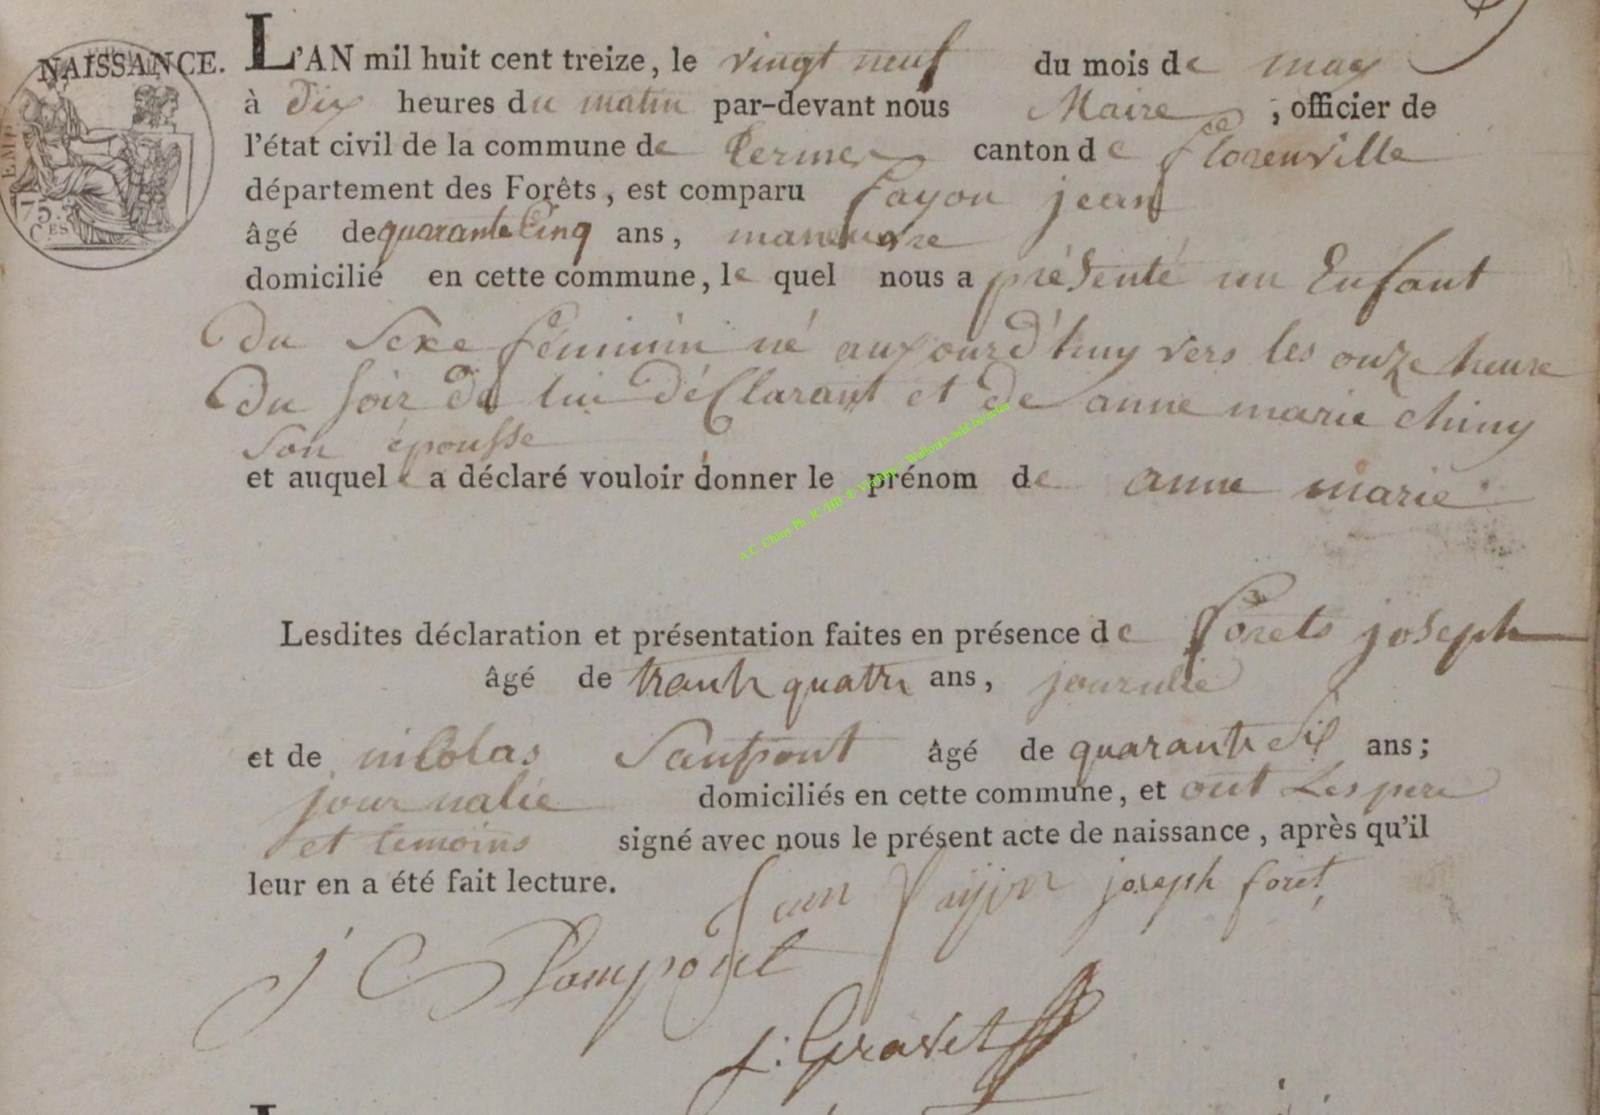 NAISSANCE. L'AN mil huit cent treize, le vingt neuf du mois de may
à dix heures du matin par-devant nous Maire, officier de
l'état civil de la commune de termes canton de florenville
département des Forêts, est comparu fayon jean
âgé de quarante Cinq ans, maneuvre
domicilié en cette commune, le quel nous a présenté un Enfant
Du Sexe féminin né aujourd'huy vers les onze heure
Du soir de lui déClarant et de anne marie chiny
Son épousse
et auquel a déclaré vouloir donner le prénom de anne marie
A.E. Chiny
Lesdites déclaration et présentation faites en présence de forets joseph
âgé de trente quatre ans, journalié
et de niColas Saupont âgé de quarante ans;
journalie domiciliés en cette commune, et ont Les pere
et temoins signé avec nous le présent acte de naissance, après qu'il
leur en a été fait lecture.
jean fayon joseph foret
f: Gravet
EMP
75.
C.ES